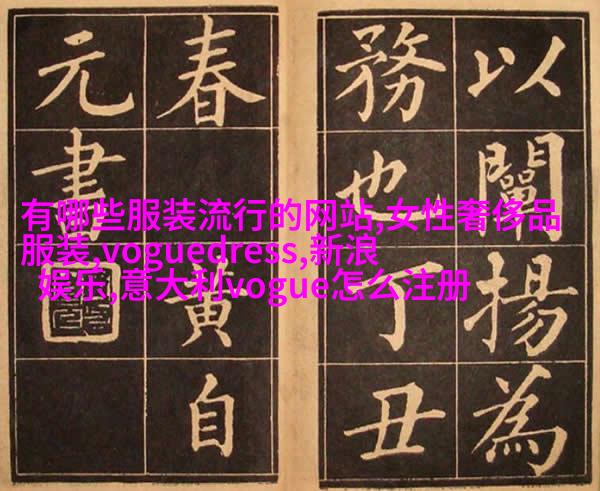 以闡揚為
務也丁丑
春黃自
元書
有哪些服装流行的网站,女性奢侈品
服装,voguedress,新浪
娱乐,意大利vogue怎么注册